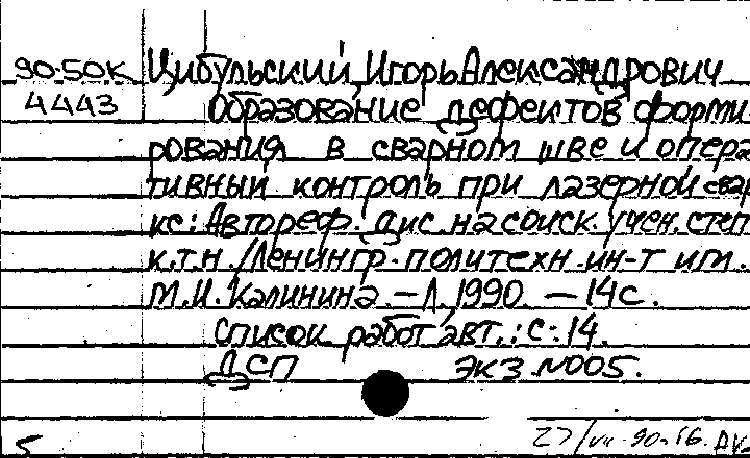 90-50К Цибульский, Игорь Александрович
4443 Образование дефектов форми-
рования в сварном шве и опера-
тивный контроль при лазерной свар-
ке: Автореф. дис. на соиск. учен. степ.
к.т.н. /Ленингр. политехн. ин-т им.
М.И. Калинина. — Л., 1990. — 14 с.
Список работ авт.: с. 14.
ДСП ЭКЗ. N005.
5 90-16. ДК